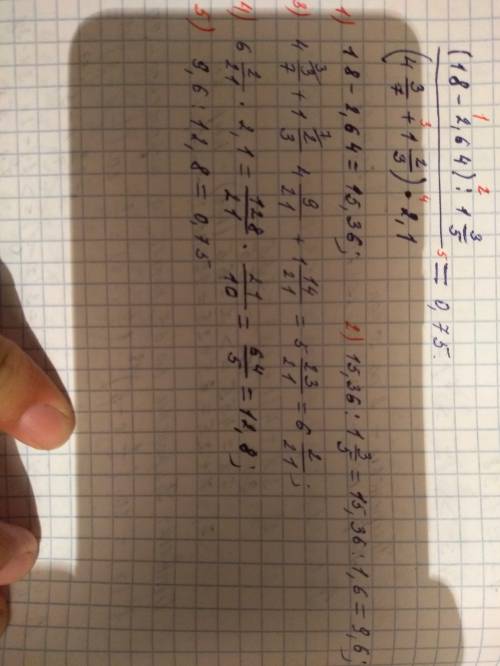 (18 - 2,64) : 1 3/5
(4 3/7 + 1 2/3) · 2,1 = 0,75.
1) 18 - 2,64 = 15,36; 2) 15,36 : 1 3/5 = 15,36 : 1,6 = 9,6;
3) 4 3/7 + 1 2/3 4 9/21 + 1 14/21 = 5 23/21 = 6 2/21;
4) 6 2/21 · 2,1 = 128/21 · 21/10 = 64/5 = 12,8;
5) 9,6 : 12,8 = 0,75